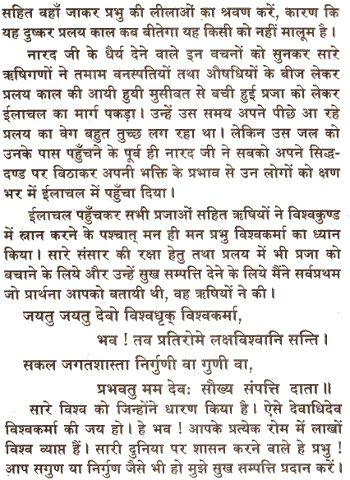 सहित वहाँ जाकर प्रभु की लीलाओं का श्रवण करें, कारण कि
यह दुष्कर प्रलय काल कब बीतेगा यह किसी को नहीं मालूम है।
नारद जी के धैर्य देने वाले इन वचनों को सुनकर सारे
ऋषिगणों ने तमाम बनस्पतियों तथा औषधियों के बीज लेकर
प्रलय काल की आयी हुयी मुसीबत से बची हुई प्रजा को लेकर
ईलाचल का मार्ग पकड़ा। उन्हें उस समय अपने पीछे आ रहे
प्रलय का वेग बहुत तुच्छ लग रहा था। लेकिन उस जल को
उनके पास पहुँचने के पूर्व ही नारद जी ने सबको अपने सिद्ध-
दण्ड पर बिठाकर अपनी भक्ति के प्रभाव से उन लोगों को क्षण
भर में ईलाचल में पहुँचा दिया।
ईलाचल पहुँचकर सभी प्रजाओं सहित ऋषियों ने विश्वकुण्ड
में स्नान करने के पश्चात् मन ही मन प्रभु विश्वकर्मा का ध्यान
किया। सारे संसार की रक्षा हेतु तथा प्रलय में भी प्रजा को
बचाने के लिये और उन्हें सुख सम्पत्ति देने के लिये मैंने सर्वप्रथम
जो प्रार्थना आपको बतायी थी, वह ऋषियों ने की।
जयतु जयतु देवो विश्वधृक् विश्वकर्मा,
भव ! तव प्रतिरोमे लक्षविश्वानि सन्ति।
सकल जगतशास्ता निर्गुणी वा गुणी वा,
प्रभवतु मम देवः सौख्य संपत्ति दाता॥
सारे विश्व को जिन्होंने धारण किया है। ऐसे देवाधिदेव
विश्वकर्मा की जय हो। हे भव ! आपके प्रत्येक रोम में लाखों
विश्व व्याप्त हैं। सारी दुनिया पर शासन करने वाले हे प्रभु !
आप सगुण या निर्गुण जैसे भी हो मुझे सुख सम्पत्ति प्रदान करें।